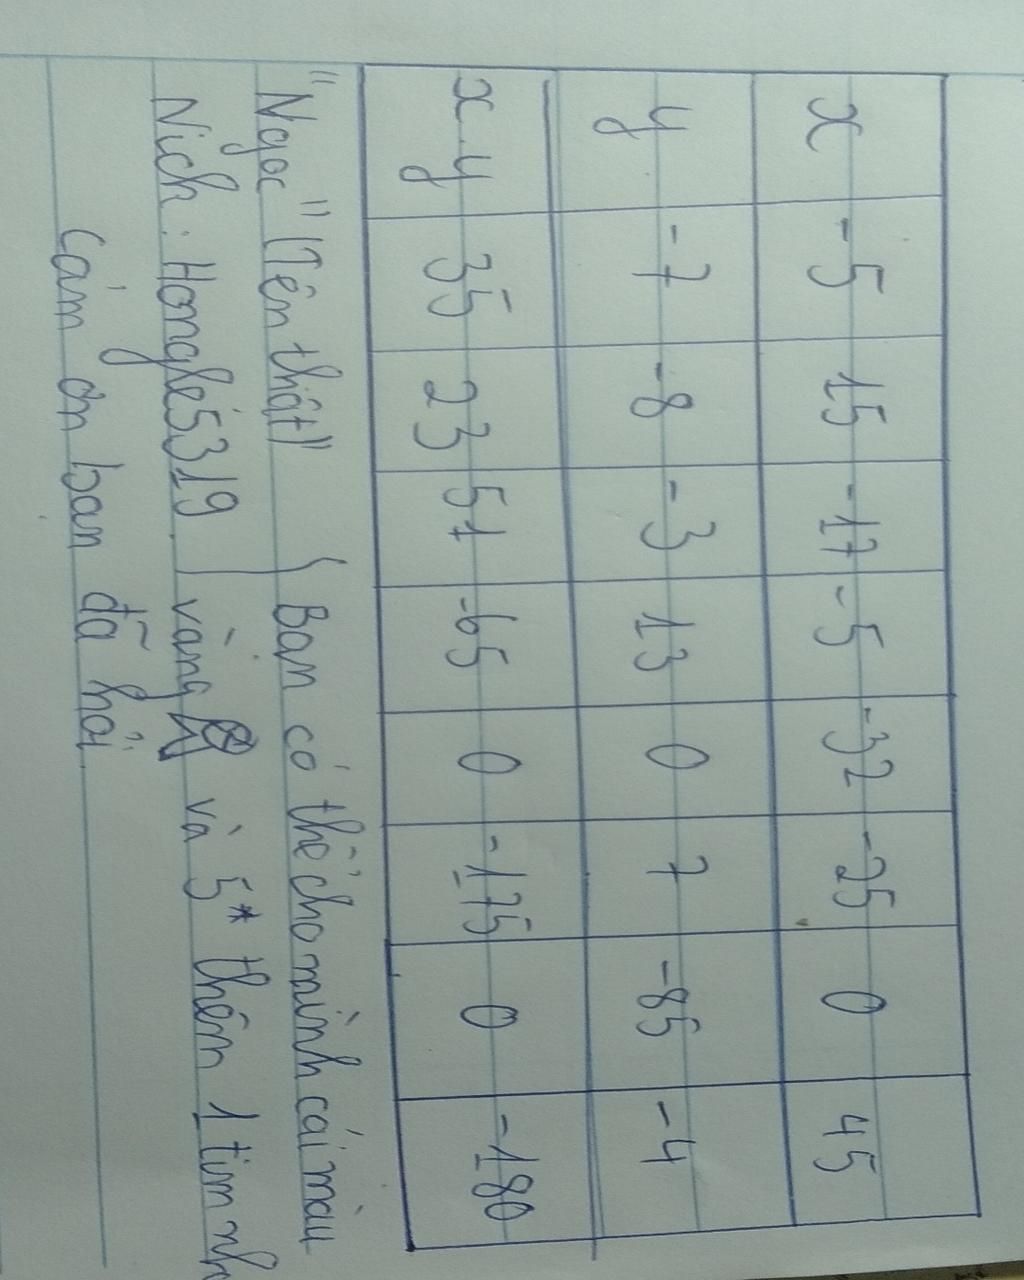 x -5 15 -17 -5 -32 -25 0 45
y -7 -8 -3 13 0 7 -85 -4
x.y 35 23 51 -65 0 -175 0 -180
"Ngọc" (Tên thật)" Bạn có thể cho mình cái màu
Nick: Honglé5319. vàng và 5* thêm 1 tim nh
Cảm ơn bạn đã hỏi.